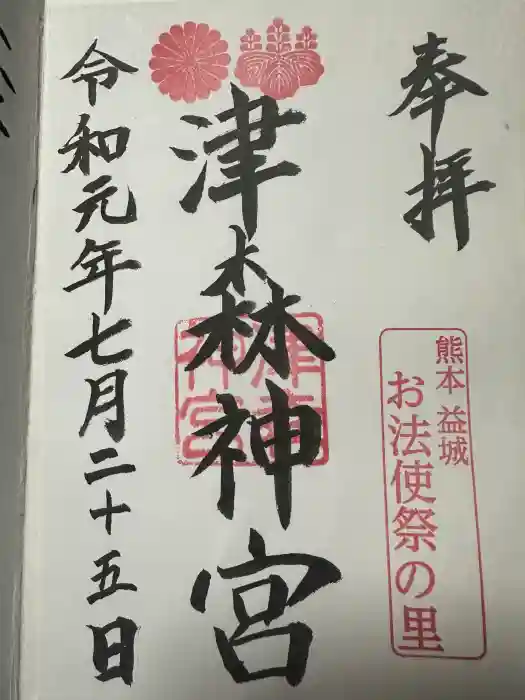 奉拝
熊本 益城
お法使祭の里
津森神宮
津森神宮
令和元年七月二十五日